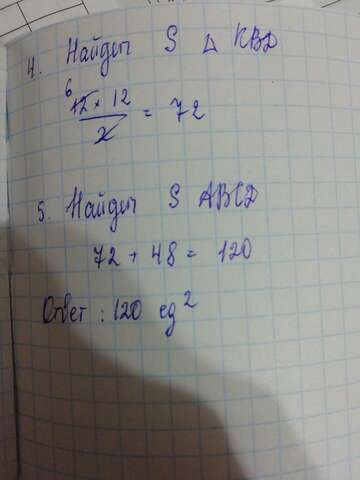 4. Найдем S △ KBD
6
12 × 12
2
= 72
5. Найдем S ABCD
72 + 48 = 120
Ответ : 120 ед²